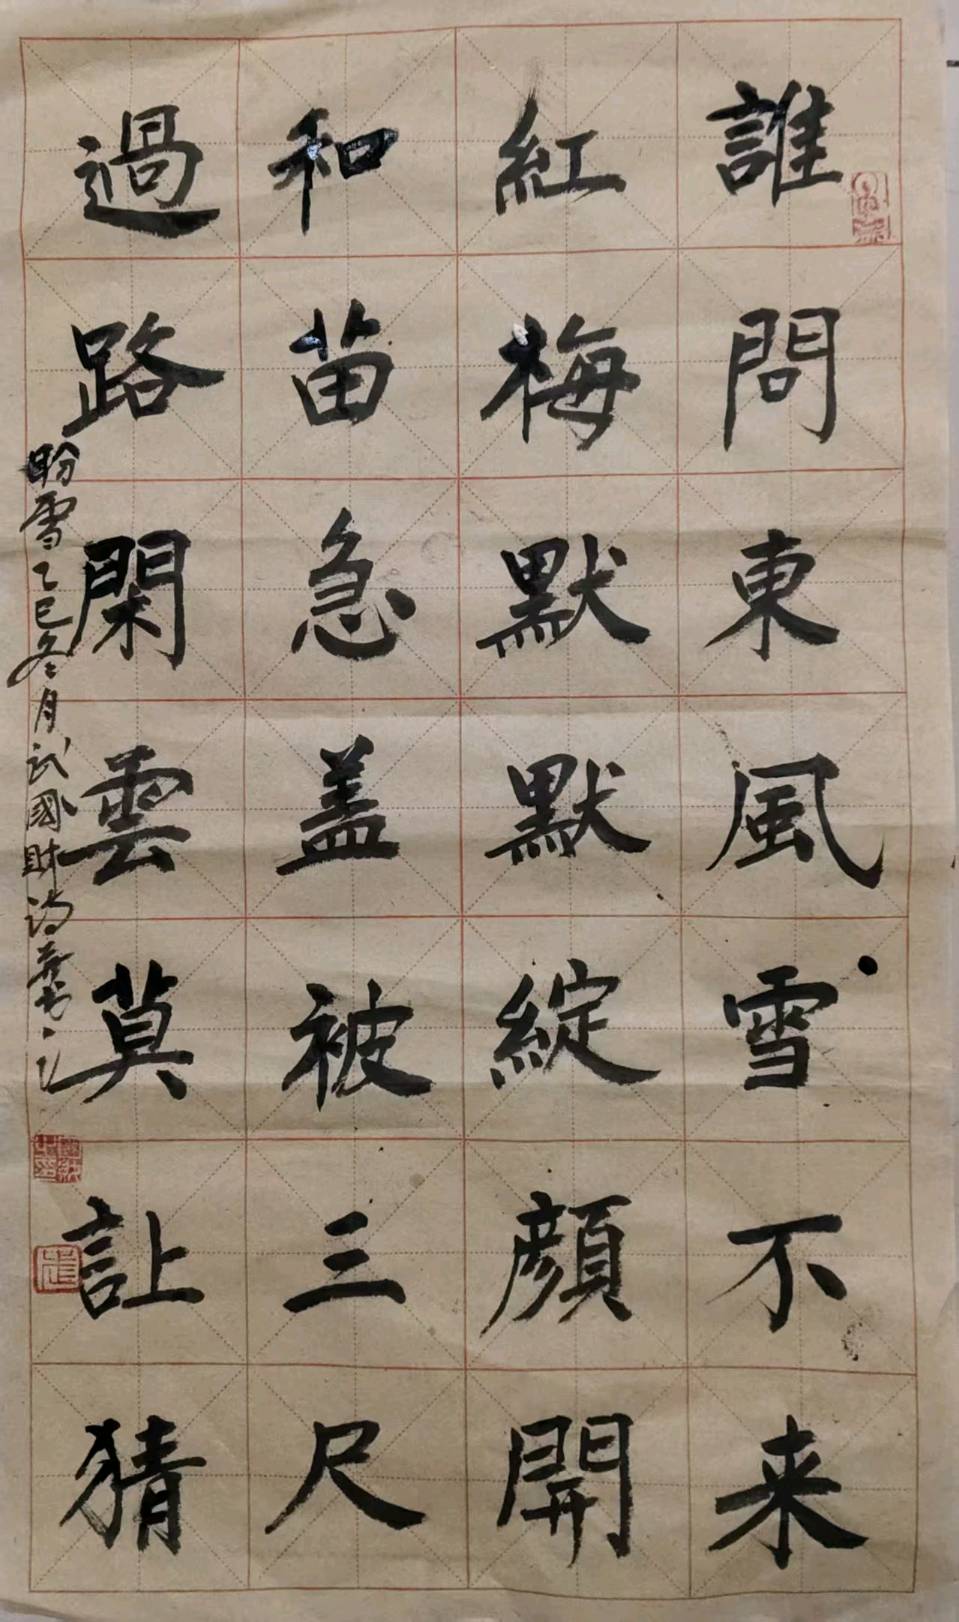 誰問東風雪不来
紅梅默默綻顔開
和苗急盖被三尺
過路閑雲莫訨猜
盼雪乙巳冬月武國財詩并书